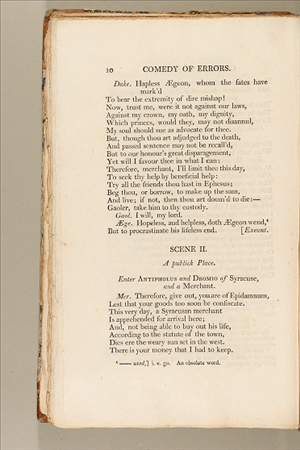 10 COMEDY OF ERRORS.
Duke. Hapless Ægeon, whom the fates have
mark'd
To bear the extremity of dire mishap!
Now, trust me, were it not against our laws,
Against my crown, my oath, my dignity,
Which princes, would they, may not disannul,
My soul should sue as advocate for thee.
But, though thou art adjudged to the death,
And passed sentence may not be recall'd,
But to our honour's great disparagement,
Yet will I favour thee in what I can:
Therefore, merchant, I'll limit thee this day,
To seek thy help by beneficial help:
Try all the friends thou hast in Ephesus;
Beg thou, or borrow, to make up the sum,
And live; if not, then thou art doom'd to die:—
Gaoler, take him to thy custody.
Gaol. I will, my lord.
Æge. Hopeless, and helpless, doth Ægeon wend,⁴
But to procrastinate his lifeless end. [Exeunt.
SCENE II.
A publick Place.
Enter ANTIPHOLUS and DROMIO of Syracuse,
and a Merchant.
Mer. Therefore, give out, you are of Epidamnum,
Lest that your goods too soon be confiscate.
This very day, a Syracusan merchant
Is apprehended for arrival here;
And, not being able to buy out his life,
According to the statute of the town,
Dies ere the weary sun set in the west.
There is your money that I had to keep.
⁴ —— wend,] i. e. go. An obsolete word.